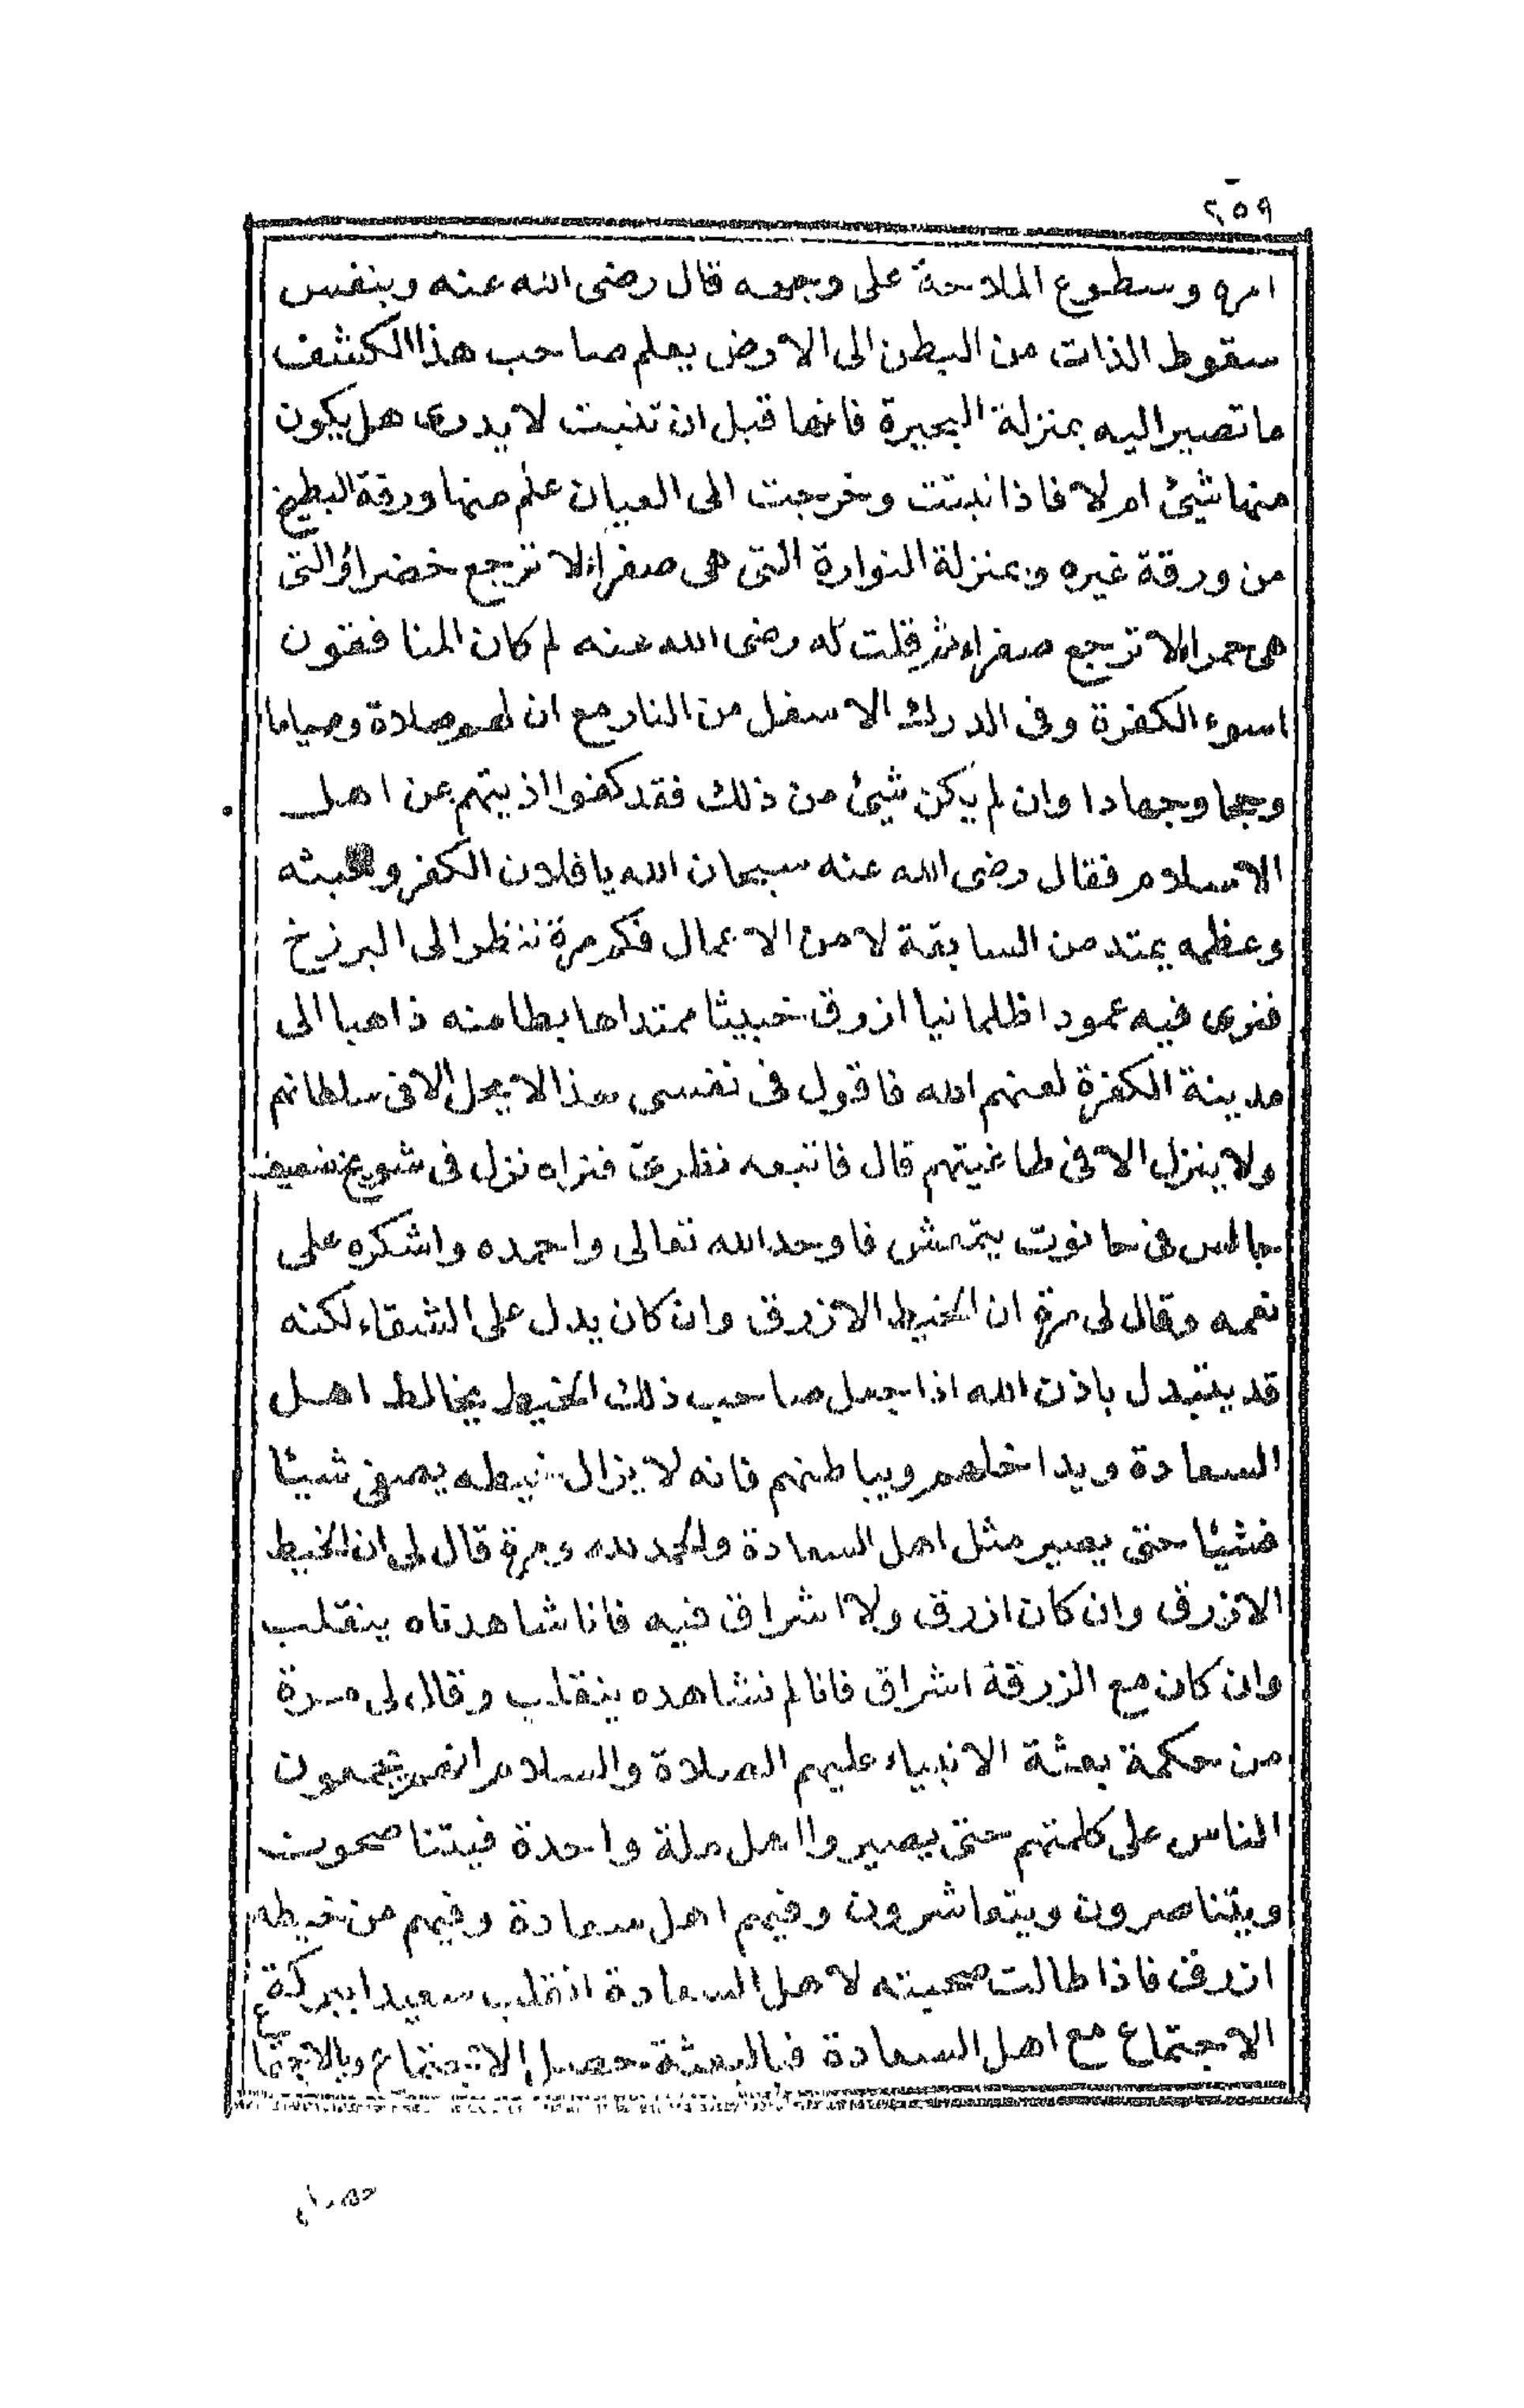 ٢٥٩
امره وسطوع الملاحة على وجهه قال رضى الله عنه وبنفس
سقوط الذات من البطن الى الارض يعلم صاحب هذا الكشف
ما تصير اليه بمنزلة البحيرة فانها قبل ان تنبت لا يدرى هل يكون
منها شيئ ام لا فاذا نبتت وخرجت الى العيان علم منها ورقة البطيخ
من ورقة غيره وبمنزلة النوارة التى هى صفراء لا ترجع خضراء والتى
هى حمراء لا ترجع صفراء ثم قلت له رضى الله عنه لم كان المنافقون
اسوء الكفرة وفى الدرك الاسفل من النار مع ان لهم صلاة وصياما
وحجا وجهادا وان لم يكن شيئ من ذلك فقد كفوا اذيتهم عن اهل
الاسلام فقال رضى الله عنه سبحان الله يا فلان الكفر وخبثه
وعظمه يمتد من السابقة لا من الاعمال فكم مرة ننظر الى البرزخ
فنرى فيه عمودا ظلمانيا ازرق خبيثا ممتدا هابطا منه ذاهبا الى
مدينة الكفرة لعنهم الله فاقول فى نفسى هذا لا يحل الا فى سلطانهم
ولا ينزل الا فى طاغيتهم قال فاتبعه نظرى فنراه نزل فى شويخ ضعيف
جالس فى حانوت يتمعش فاوحد الله تعالى واحمده واشكره على
نعمه وقال لى مرة ان الخيط الازرق وان كان يدل على الشقاء لكنه
قد يتبدل باذن الله اذا جعل صاحب ذلك الخيط يخالط اهل
السعادة ويداخلهم ويباطنهم فانه لا يزال خيطه يصفى شيئا
فشيئا حتى يصير مثل اهل السعادة والحمد لله ومرة قال لى ان الخيط
الازرق وان كان ازرق ولا اشراق فيه فانا شاهدناه ينقلب
وان كان مع الزرقة اشراق فانا لم نشاهده ينقلب وقال لى مرة
من حكمة بعثة الانبياء عليهم الصلاة والسلام انهم يجمعون
الناس على كلمتهم حتى يصيروا اهل ملة واحدة فيتناصحون
ويتناصرون ويتعاشرون وفيهم اهل سعادة وفيهم من خيطه
ازرق فاذا طالت صحبته لاهل السعادة انقلب سعيدا ببركة
الاجتماع مع اهل السعادة فبالبعثة حصل الاجتماع وبالاجتماع
حصل